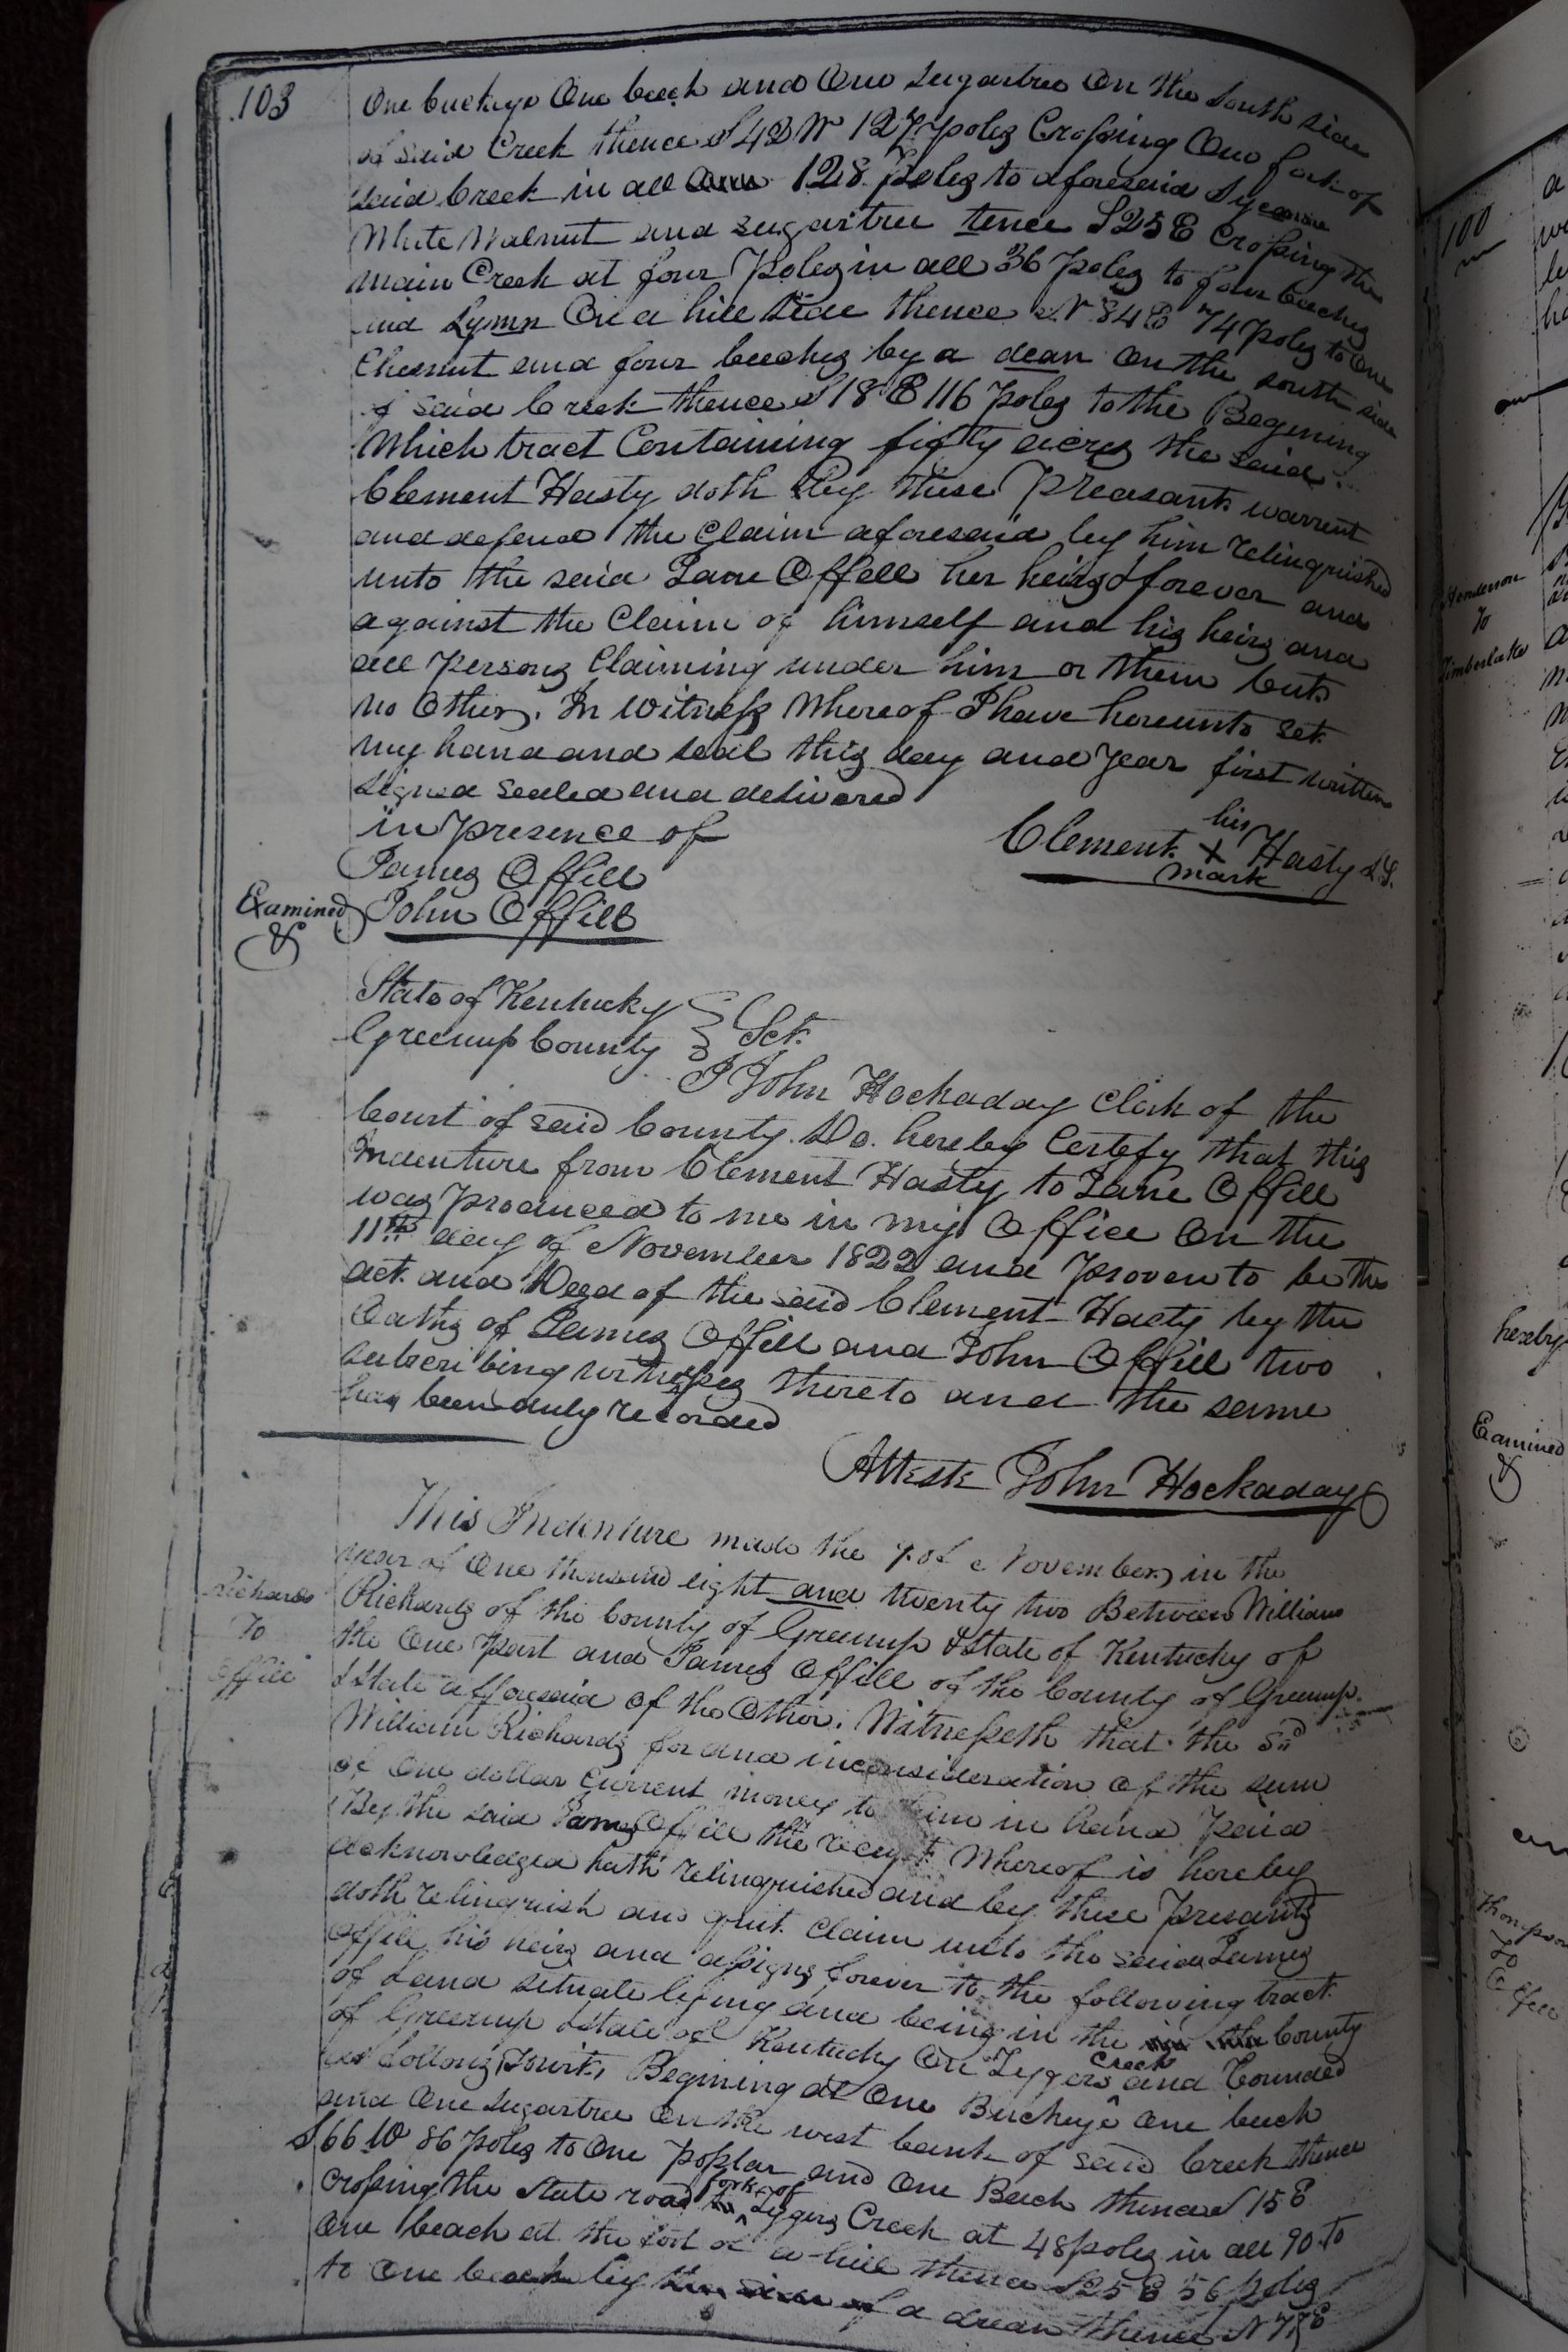 103
One buckeye One beech and One Sugartree On the South side
of said Creek thence S 42 W 127 poles Crossing One fork of
said Creek in all 128 Poles to aforesaid Sycamore
White Walnut and sugartree tence S 25 E Crossing the
main Creek at four Poles in all 36 poles to four beeches
and Lymn On a hill Side thence N 84 E 74 poles to One
Chesnut and four beeches by a dean On the south side
of said Creek thence S 18 E 116 poles to the Begining
Which tract Containing fifty acres the said
Clement Hasty doth By these Preasants warrent
and defend the Claim aforesaid by him relinquished
unto the said Jane Offill her heirs forever and
against the Claim of himself and his heirs and
all Persons Claiming under him or them but
no Others. In Witness Whereof I have hereunto set
my hand and seal this day and Year first written
Signed sealed and delivered
in presence of
his
Clement X Hasty L.S.
mark
James Offill
Examined
John Offill
State of Kentucky
Greenup County Sct.
I John Hockaday Clerk of the
Court of said County Do hereby Certefy that this
Indenture from Clement Hasty to Jane Offill
was produced to me in my Office On the
11th day of November 1822 and proven to be the
act and Deed of the said Clement Hasty by the
Oaths of James Offill and John Offill two
subscribing witnesses thereto and the same
has been duly recorded
Attest John Hockaday
This Indenture made the 7 of November in the
year of One thousand eight and twenty two Between William
Richards
To
Offill
Richards of the County of Greenup & State of Kentucky of
the One part and James Offill of the County of Greenup
& State afforesaid of the Other. Witnesseth that the Sd
William Richards for and inconsideration of the sum
of One dollar Current money to him in hand Paid
By the said James Offill the receipt Whereof is hereby
acknowledged hath relinquished and by these Presants
doth relinquish and quit Claim unto the said James
Offill his heirs and assigns forever to the following tract
of Land situate lying and being in the County
of Greenup & State of Kentucky On Tygers Creek and bounded
as Begining at One Buckeye One beech
and One Sugartree On the west bank of said Creek thence
S 66 W 86 poles to One poplar and One Beech thence S 15 E
Crossing the State road fork of Tygers Creek at 48 poles in all 90 to
One beach at the foot of a hill thence S 25 E 56 poles
to One beach by of a drean thence N
100
Henderson
To
Timberlake
hereby
Examined
Thompson
To